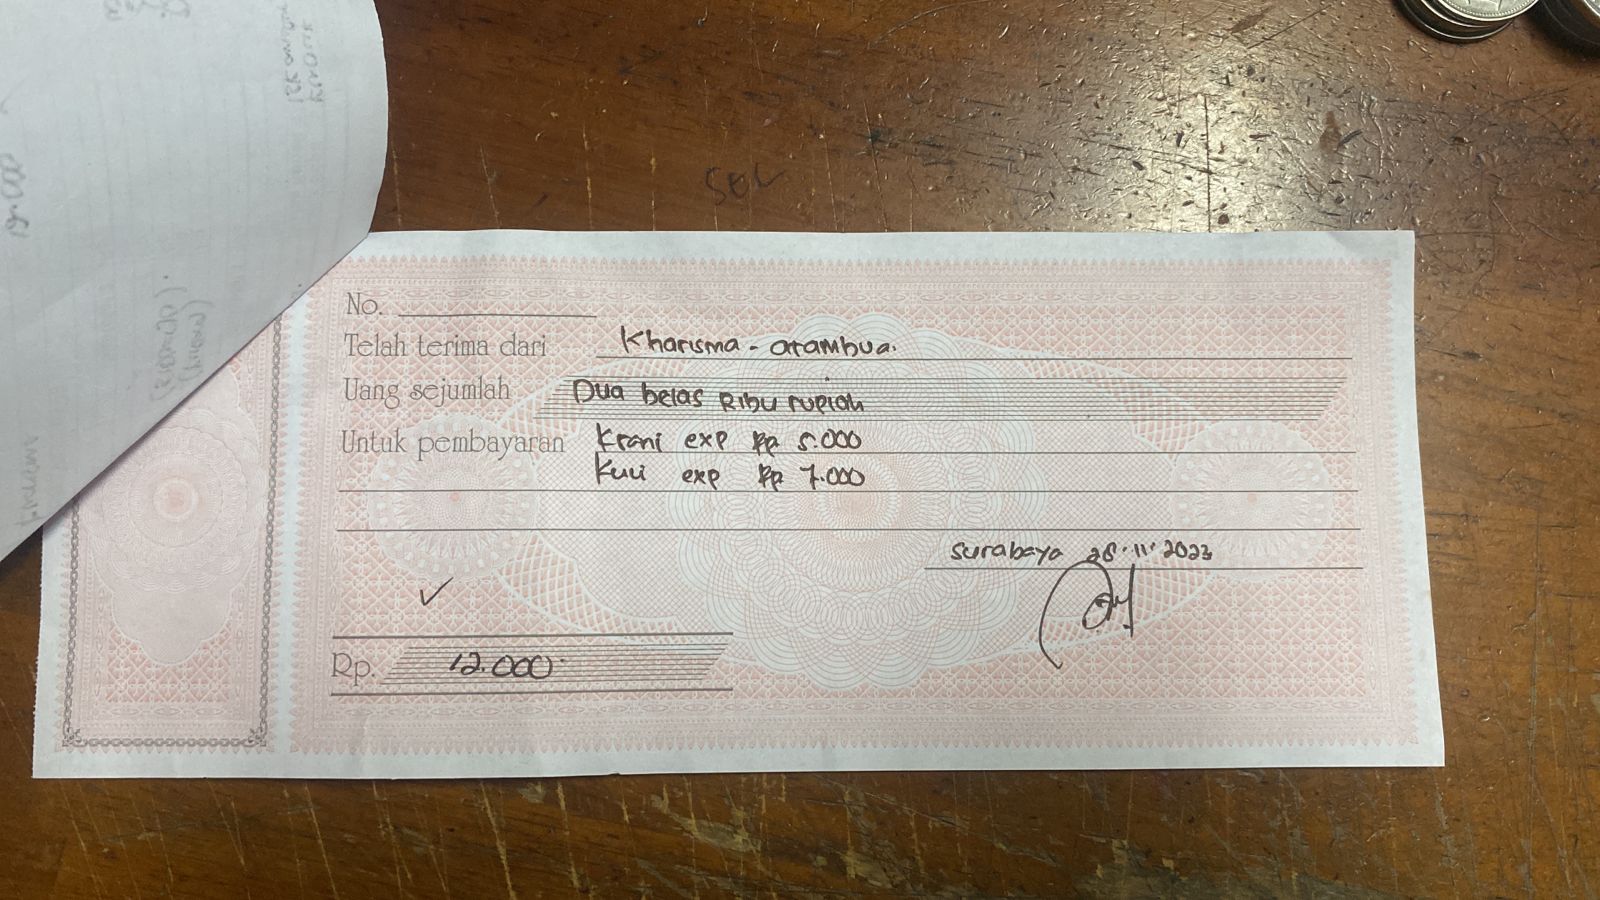 SEL
No.
Telah terima dari Kharisma - atambua.
Uang sejumlah Dua belas Ribu rupiah
Untuk pembayaran Krani exp Rp 5.000
Kuli exp Rp 7.000
Surabaya 28.11.2023
Rp. 12.000